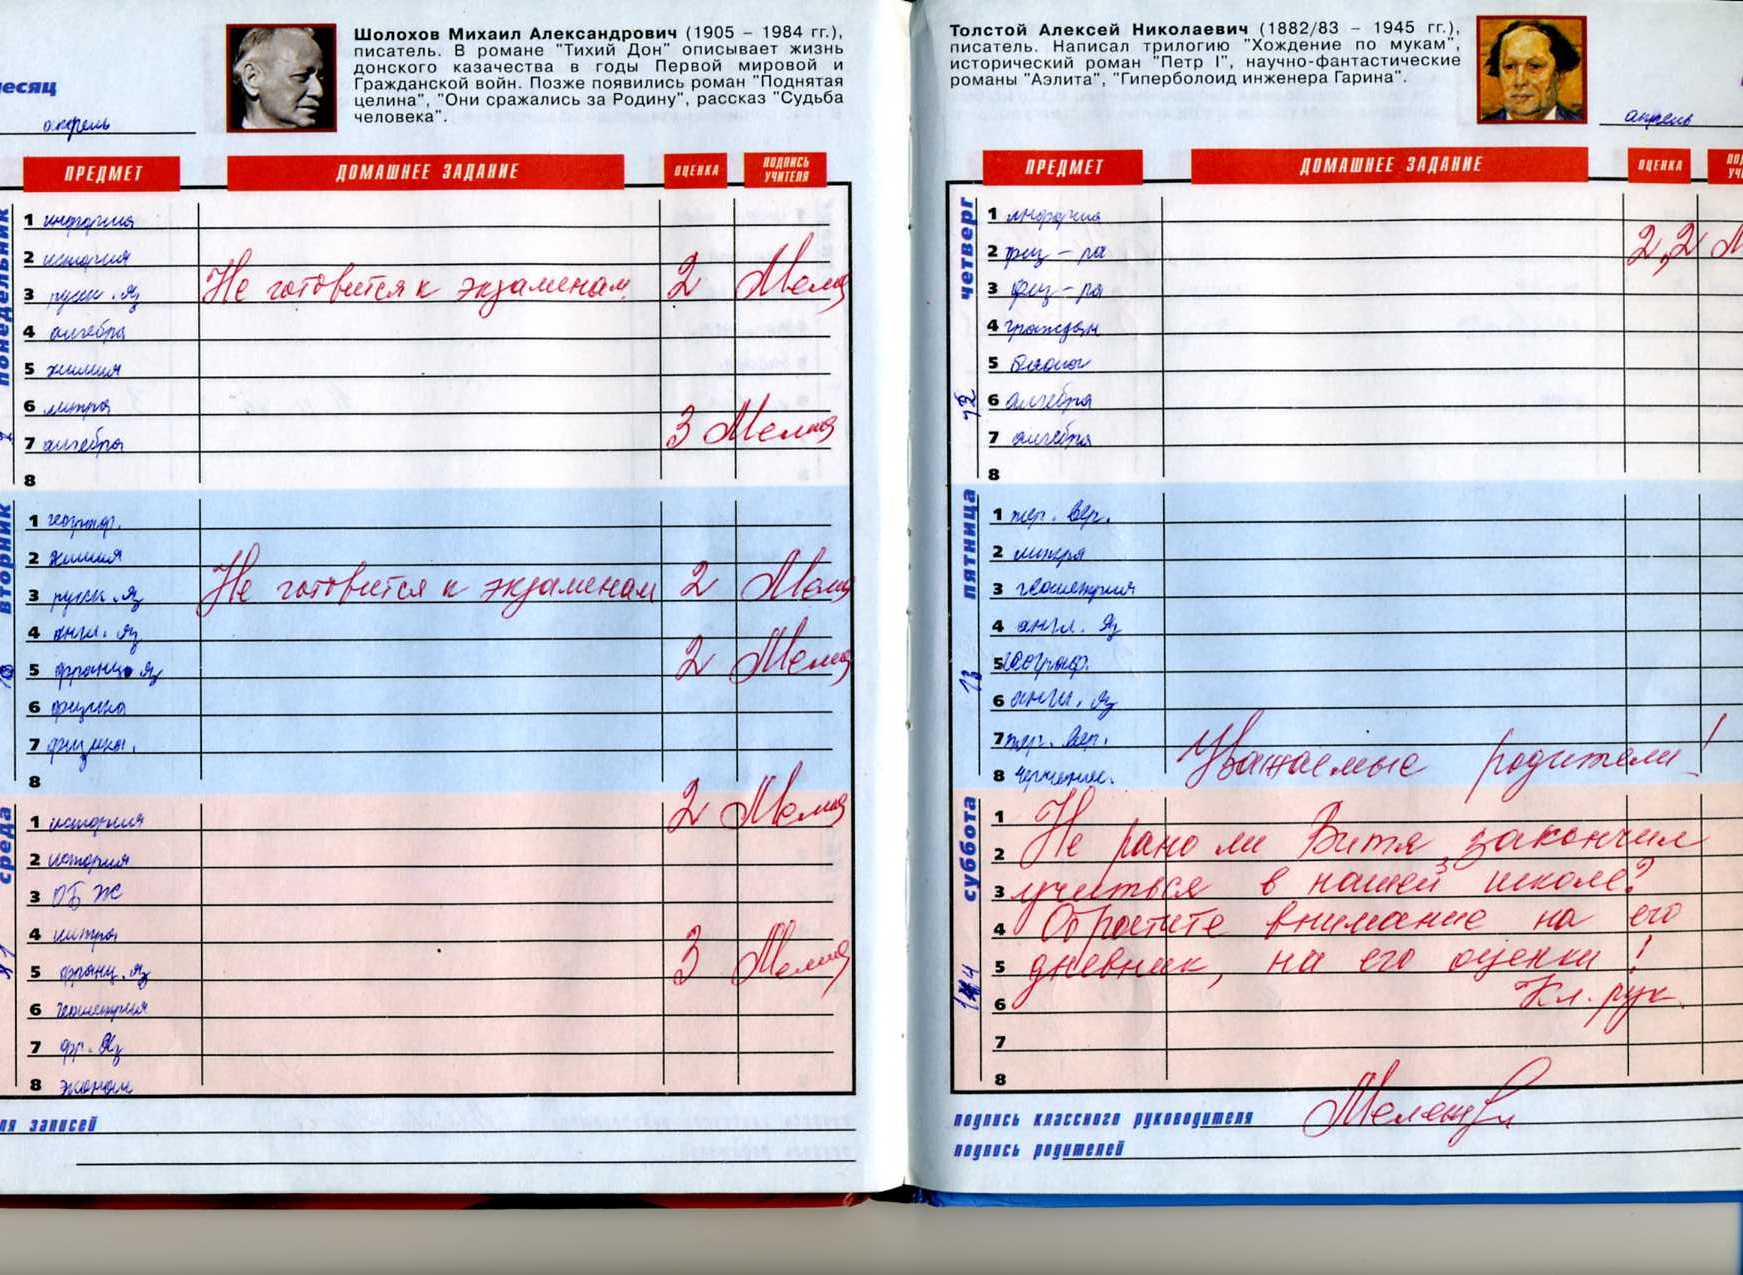 Шолохов Михаил Александрович (1905 – 1984 гг.),
писатель. В романе "Тихий Дон" описывает жизнь
донского казачества в годы Первой мировой и
Гражданской войн. Позже появились роман "Поднятая
целина", "Они сражались за Родину", рассказ "Судьба
человека".
есяц
апрель
ПРЕДМЕТ ДОМАШНЕЕ ЗАДАНИЕ ОЦЕНКА ПОДПИСЬ УЧИТЕЛЯ
понедельник
1
2 история
3 русск. яз Не готовится к экзаменам 2
4 алгебра
5 химия
6 литра
7 алгебра 3
8
вторник
1 географ.
2 химия
3 русск. яз Не готовится к экзаменам 2
4 англ. яз
5 франц. яз 2
6 физика
7 физика.
8
среда
1 история 2
2 история
3 ОБЖ
4 литра
5 франц. яз 3
6 геометрия
7 фр. яз
8 эконом
ля записей
Толстой Алексей Николаевич (1882/83 – 1945 гг.),
писатель. Написал трилогию "Хождение по мукам",
исторический роман "Петр I", научно-фантастические
романы "Аэлита", "Гиперболоид инженера Гарина".
апрель
ПРЕДМЕТ ДОМАШНЕЕ ЗАДАНИЕ ОЦЕНКА
четверг
1
2 физ-ра 2,2
3 физ-ра
4 граждан
5 биолог
6 алгебра
7 алгебра
8
пятница
13
1 тер. вер.
2 литра
3 геометрия
4 англ. яз
5 географ.
6 англ. яз
7 тер. вер.
8 черчение. Уважаемые родители!
суббота
14
1
2 Не рано ли Витя закончил
3 учиться в нашей школе?
4 Обратите внимание на его
5 дневник, на его оценки!
6 Кл. рук.
7
8
подпись классного руководителя
подпись родителей